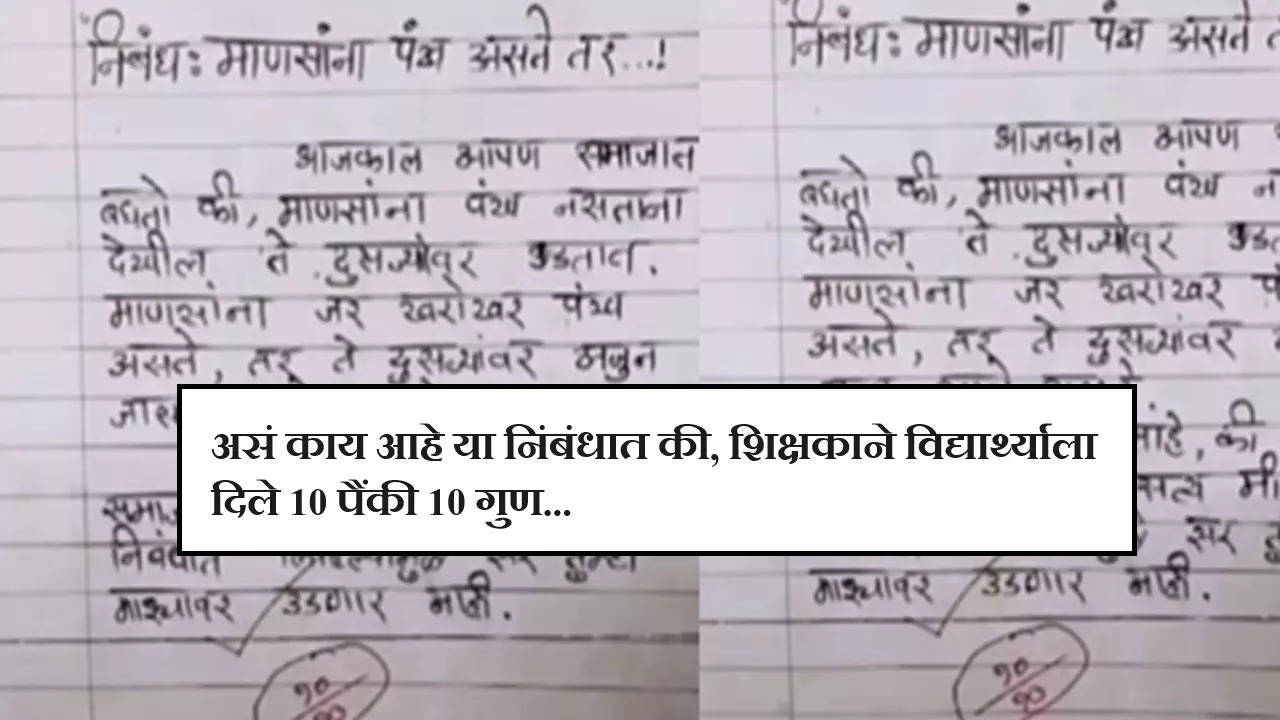 निबंध: माणसांना पंख असते तर...!
आजकाल आपण समाजात
बघतो की, माणसांना पंख नसताना
देखील ते दुसऱ्यांवर उडतात.
माणसांना जर खरोखर पंख
असते, तर ते दुसऱ्यांवर अजुन
समाज
निबंधात सर तुम्ही
माझ्यावर उडणार नाही.
१०
१०
निबंध: माणसांना पंख असते
आजकाल आपण
बघतो की, माणसांना पंख
देखील ते दुसऱ्यांवर
माणसांना जर खरोखर
असते, तर ते दुसऱ्यांवर
की
सत्य मी
सर
माझ्यावर उडणार नाही.
१०
१०
असं काय आहे या निंबंधात की, शिक्षकाने विद्यार्थ्याला
दिले 10 पैंकी 10 गुण...